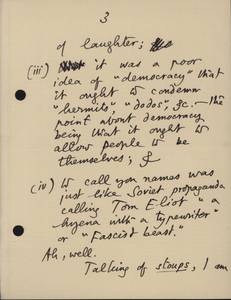 3
of laughter;
(iii) it was a poor
idea of "democracy" that
it ought to condemn
"hermits", "dodos", &c. — the
point about democracy
being that it ought to
allow people to be
themselves; &
(iv) to call you names was
just like Soviet propaganda
calling Tom Eliot "a
hyena with a typewriter"
or "Fascist beast."
Ah, well.
Talking of stoups, I am